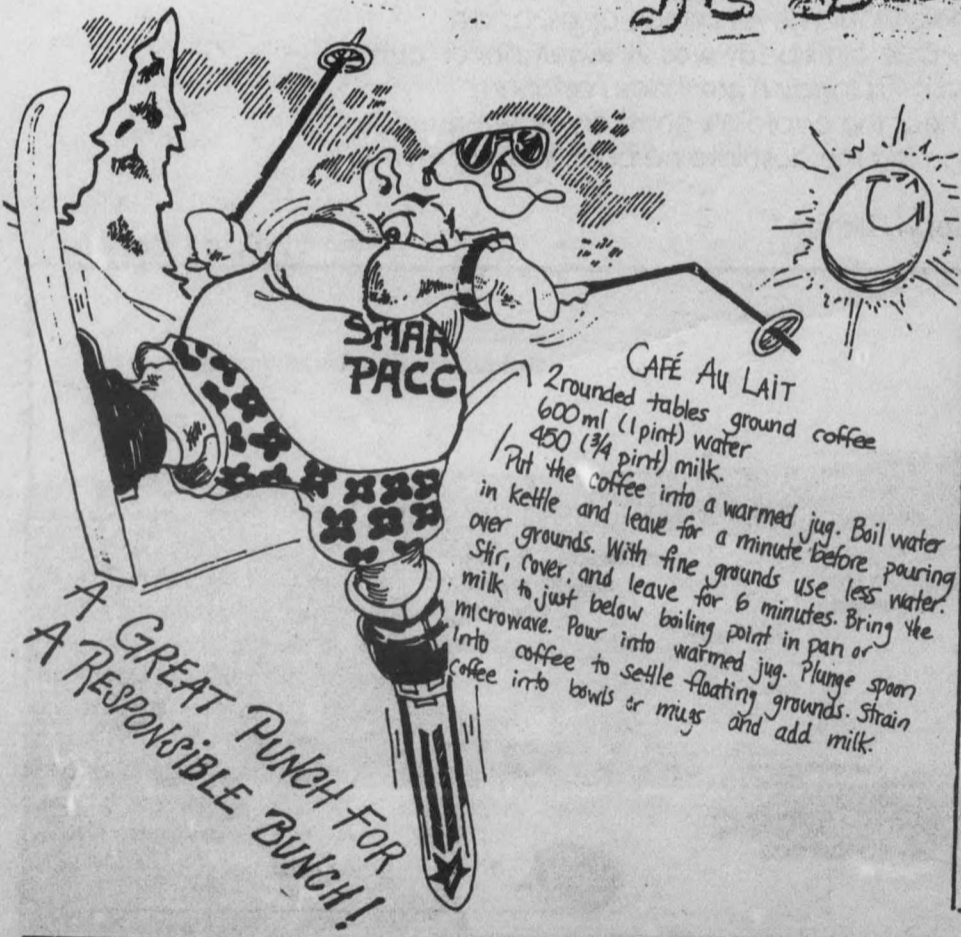 SMAA
PACC
CAFÉ AU LAIT
2 rounded tables ground coffee
600 ml (1 pint) water
450 (3/4 pint) milk.
Put the coffee into a warmed jug. Boil water
in kettle and leave for a minute before pouring
over grounds. With fine grounds use less water.
Stir, cover, and leave for 6 minutes. Bring the
milk to just below boiling point in pan or
microwave. Pour into warmed jug. Plunge spoon
into coffee to settle floating grounds. Strain
coffee into bowls or mugs and add milk.
A GREAT PUNCH FOR
A RESPONSIBLE BUNCH!